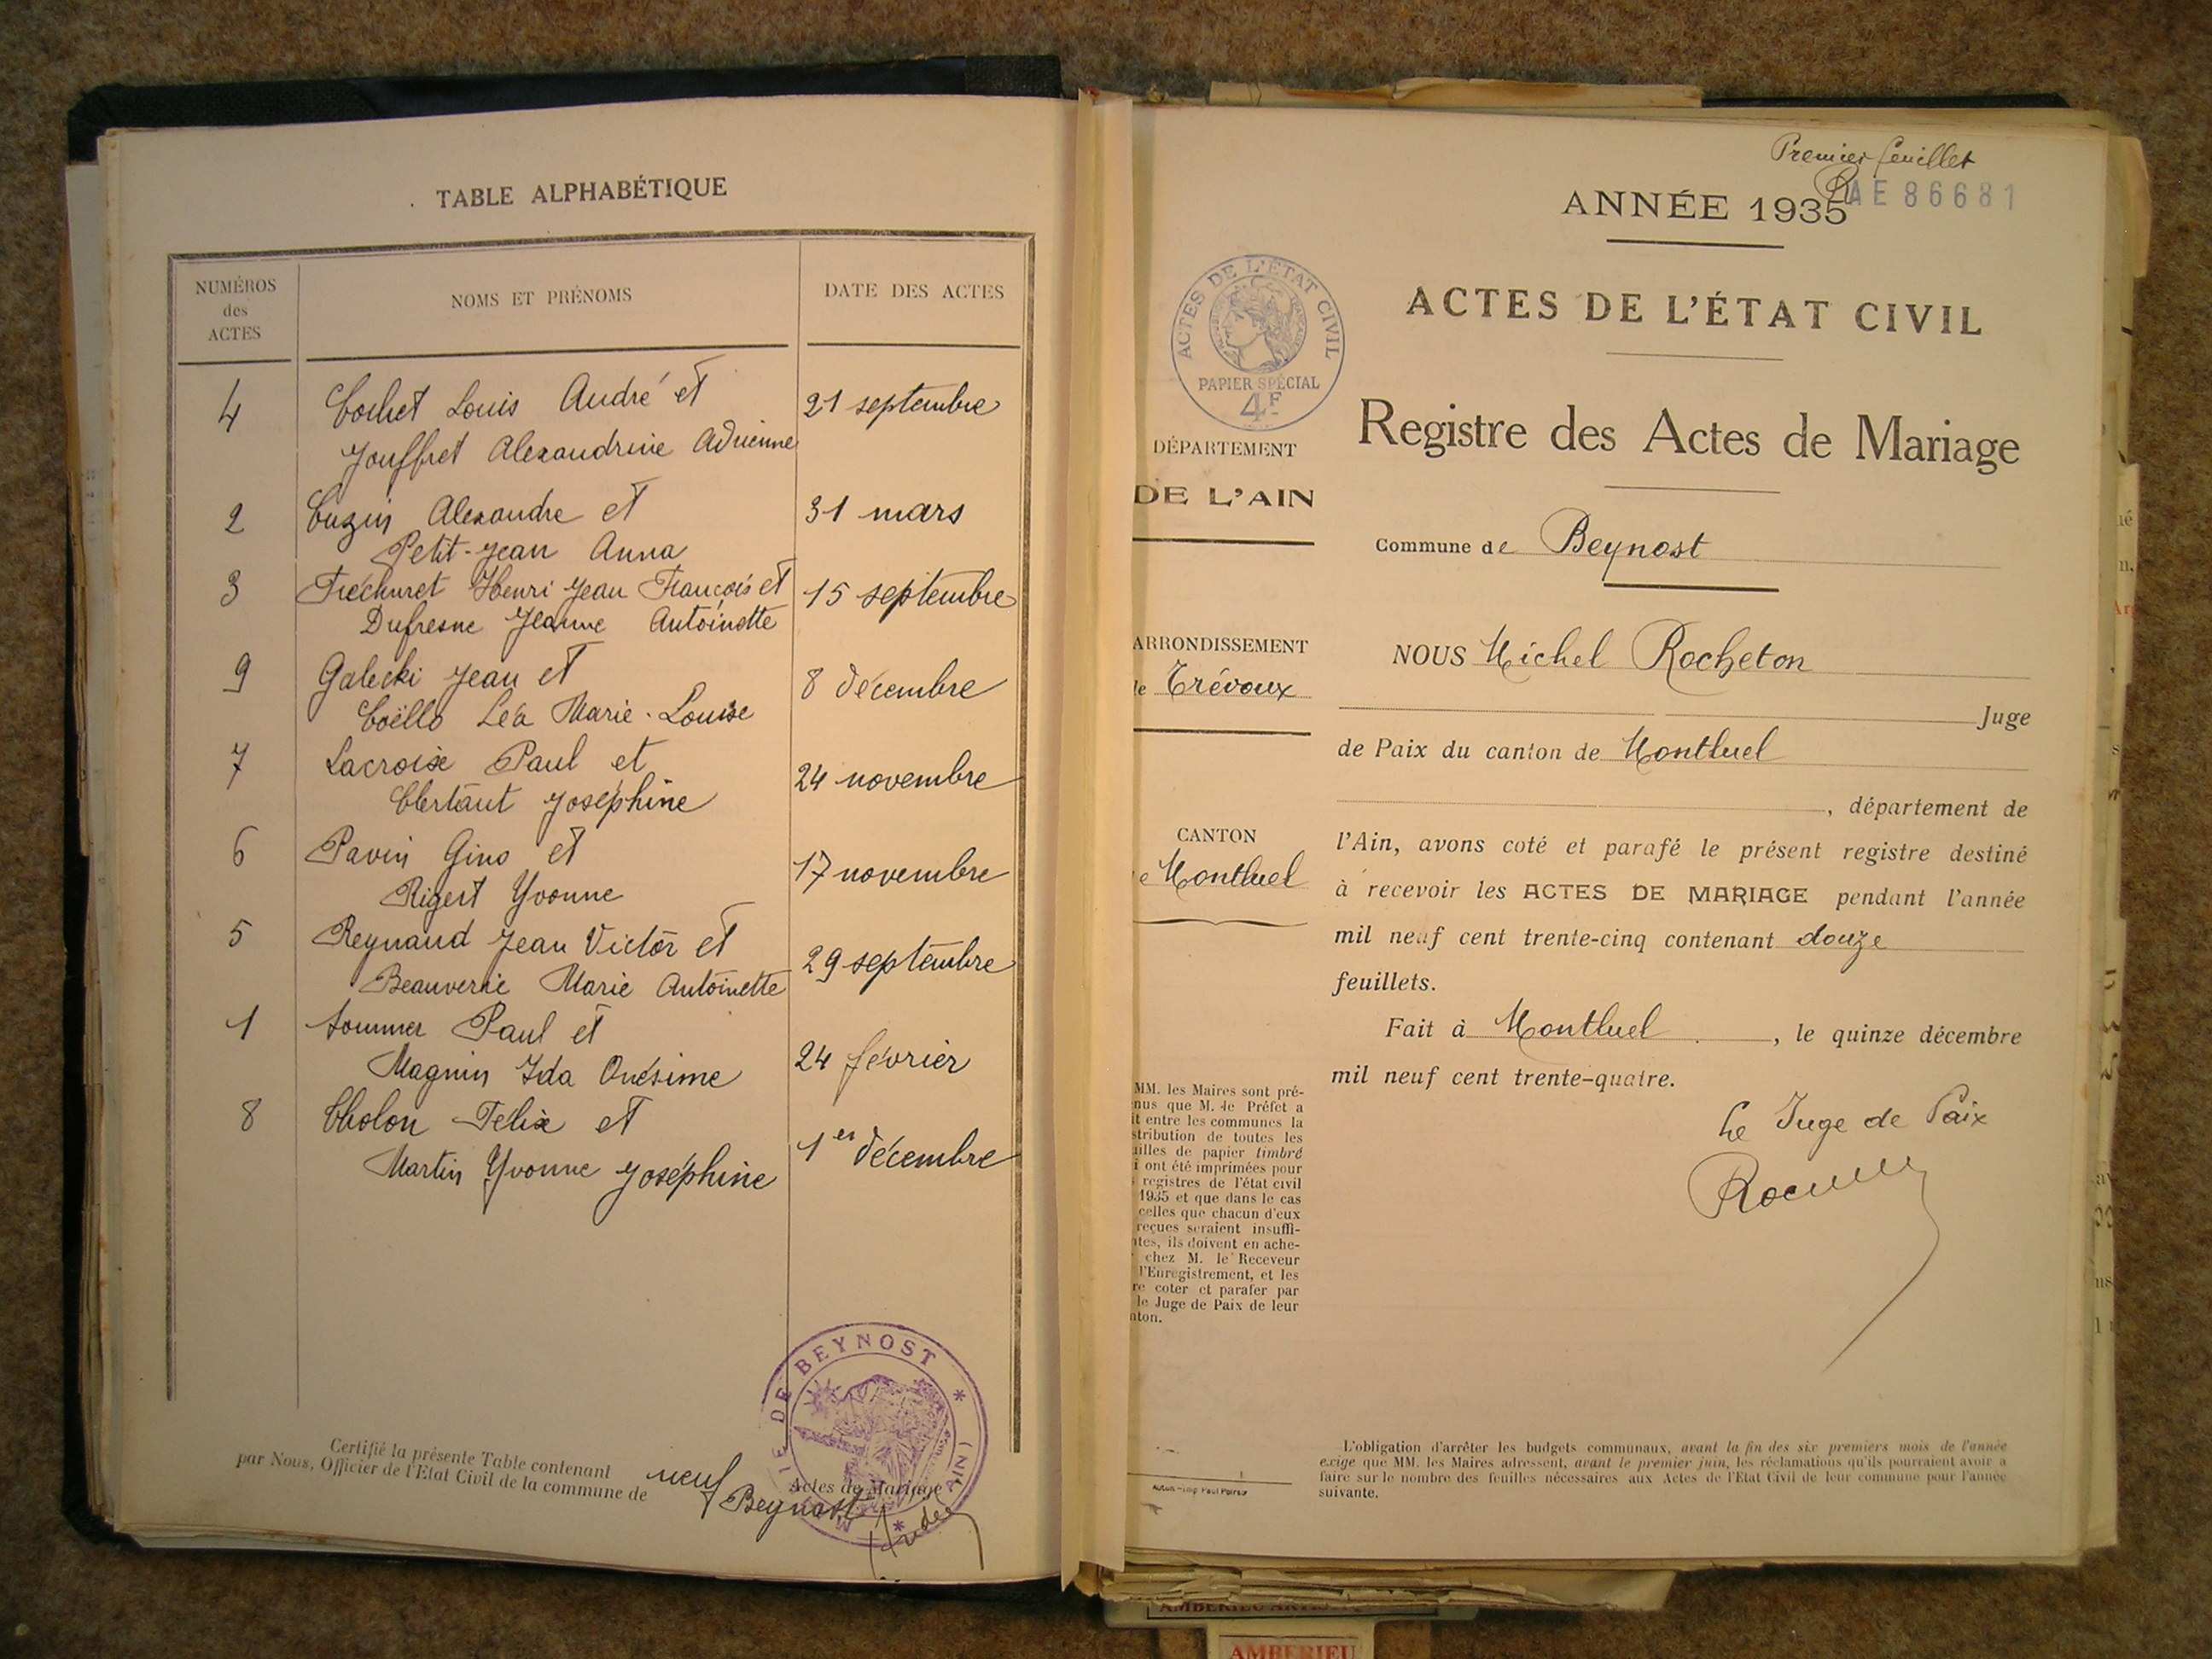 TABLE ALPHABÉTIQUE
NUMÉROS
des
ACTES
NOMS ET PRÉNOMS
DATE DES ACTES
4 Cochet Louis André et 21 septembre
Jouffret Alexandrine Adrienne
2 Cuzin Alexandre et 31 mars
Petit-Jean Anna
3 Fréchuret Henri Jean François et 15 septembre
Dufresne Jeanne Antoinette
9 Galecki Jean et 8 décembre
Coëllo Léa Marie-Louise
7 Lacroix Paul et 24 novembre
Joséphine
6 Pavin Gino et 17 novembre
Rigert Yvonne
5 Reynaud Jean Victor et 29 septembre
Beauverie Marie Antoinette
1 Sommer Paul et 24 février
Magnin Ida Onésime
8 Cholon Félix et 1er décembre
Martin Yvonne Joséphine
Certifié la présente Table contenant neuf Actes de Mariage
par Nous, Officier de l'Etat Civil de la commune de Beynost
DE BEYNOST * (AIN) *
Premier feuillet
AE 86681
ANNÉE 1935
ACTES DE L'ÉTAT CIVIL
PAPIER SPÉCIAL
4F
ACTES DE L'ÉTAT CIVIL
Registre des Actes de Mariage
DÉPARTEMENT
DE L'AIN
Commune de Beynost
ARRONDISSEMENT
de Trévoux
NOUS Michel Rocheton
Juge
de Paix du canton de Montluel
, département de
CANTON
e Montluel
l'Ain, avons coté et parafé le présent registre destiné
à recevoir les ACTES DE MARIAGE pendant l'année
mil neuf cent trente-cinq contenant douze
feuillets.
Fait à Montluel, le quinze décembre
mil neuf cent trente-quatre.
Le Juge de Paix
MM. les Maires sont pré-
nus que M. le Préfet a
it entre les communes la
stribution de toutes les
uilles de papier timbré
i ont été imprimées pour
s registres de l'état civil
1935 et que dans le cas
celles que chacun d'eux
reçues seraient insuffi-
ntes, ils doivent en ache-
chez M. le Receveur
l'Enregistrement, et les
re coter et parafer par
le Juge de Paix de leur
nton.
Autun - Imp Paul Poirson
L'obligation d'arrêter les budgets communaux, avant la fin des six premiers mois de l'année
exige que MM. les Maires adressent, avant le premier juin, les réclamations qu'ils pourraient avoir à
faire sur le nombre des feuilles nécessaires aux Actes de l'Etat Civil de leur commune pour l'année
suivante.
AMBERIEU